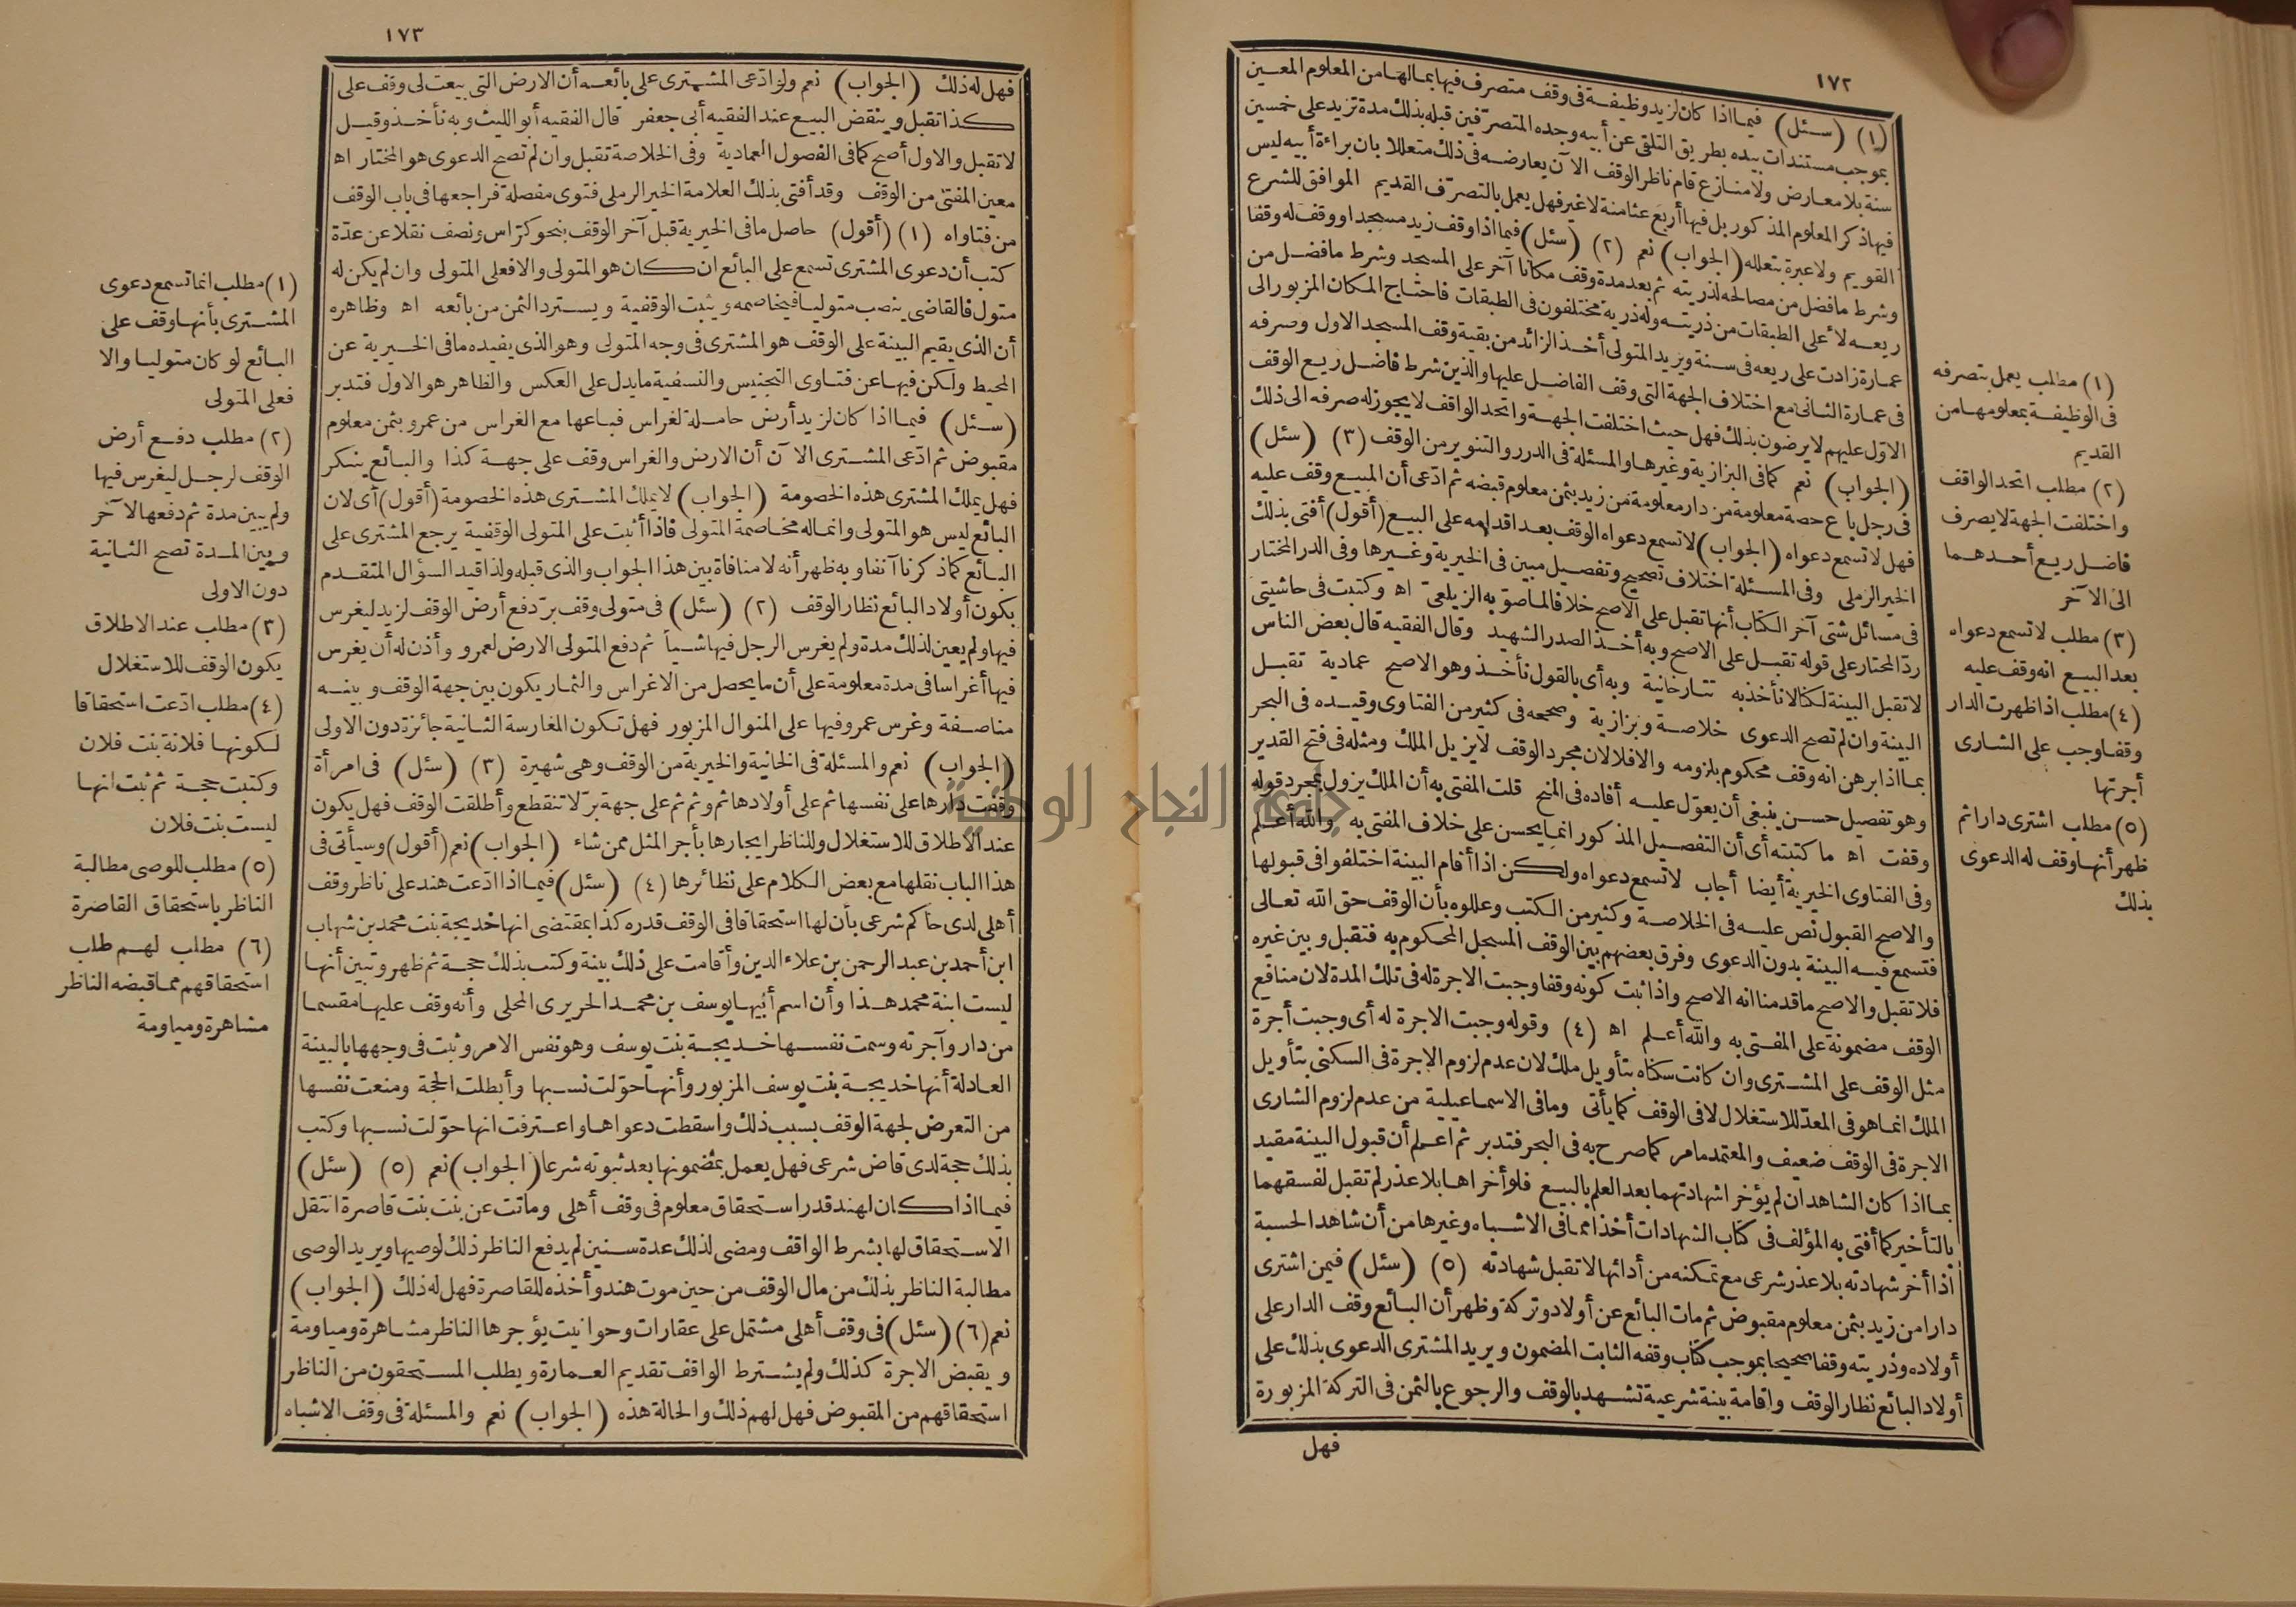 ١٧٢
(١) (سئل) فيما اذا كان لزيد وظيفة فى وقف متصرف فيها بمالها من المعلوم المعين
بموجب مستندات بيده بطريق التلقى عن أبيه وجده المتصرّفين قبله بذلك مدة تزيد على خمسين
سنة بلا معارض ولا منازع قام ناظر الوقف الآن يعارضه فى ذلك متعللا بان براءة أبيه ليس
فيها ذكر المعلوم المذكور بل فيها أربع عثامنة لا غير فهل يعمل بالتصرّف القديم الموافق للشرع
القويم ولا عبرة بتعلله (الجواب) نعم (٢) (سئل) فيما اذا وقف زيد مسجدا ووقف له وقفا
وشرط ما فضل من مصالحه لذريته ثم بعد مدة وقف مكانا آخر على المسجد وشرط ما فضل من
ريعه لأعلى الطبقات من ذريته وله ذرية مختلفون فى الطبقات فاحتاج المكان المزبور الى
عمارة زادت على ريعه فى سنة ويريد المتولى أخذ الزائد من بقية وقف المسجد الاول وصرفه
فى عمارة الثانى مع اختلاف الجهة التى وقف الفاضل عليها والذين شرط فاضل ريع الوقف
الاوّل عليهم لا يرضون بذلك فهل حيث اختلفت الجهة واتحد الواقف لا يجوز له صرفه الى ذلك
(الجواب) نعم كما فى البزازية وغيرها والمسئلة فى الدرر والتنوير من الوقف (٣) (سئل)
فى رجل باع حصة معلومة من دار معلومة من زيد بثمن معلوم قبضه ثم ادّعى أن المبيع وقف عليه
فهل لا تسمع دعواه (الجواب) لا تسمع دعواه الوقف بعد اقدامه على البيع (أقول) أفتى بذلك
الخير الرملى وفى المسئلة اختلاف تصحيح وتفصيل مبين فى الخيرية وغيرها وفى الدر المختار
فى مسائل شتى آخر الكتاب أنها تقبل على الاصح خلافا لما صوّبه الزيلعى اه وكتبت فى حاشيتى
ردّ المحتار على قوله تقبل على الاصح وبه أخذ الصدر الشهيد وقال الفقيه قال بعض الناس
لا تقبل البينة لكنا لا نأخذ به تتارخانية وبه أى بالقول نأخذ وهو الاصح عمادية تقبل
البينة وان لم تصح الدعوى خلاصة وبزازية وصححه فى كثير من الفتاوى وقيده فى البحر
بما اذا برهن انه وقف محكوم بلزومه والا فلا لان مجرد الوقف لا يزيل الملك ومثله فى فتح القدير
وهو تفصيل حسن ينبغى أن يعوّل عليه أفاده فى المنح قلت المفتى به أن الملك يزول بمجرد قوله
وقفت اه ما كتبته أى أن التفصيل المذكور انما يحسن على خلاف المفتى به والله أعلم
وفى الفتاوى الخيرية أيضا أجاب لا تسمع دعواه ولكن اذا أقام البينة اختلفوا فى قبولها
والاصح القبول نص عليه فى الخلاصة وكثير من الكتب وعللوه بأن الوقف حق الله تعالى
فتسمع فيه البينة بدون الدعوى وفرق بعضهم بين الوقف المسجل المحكوم به فتقبل وبين غيره
فلا تقبل والاصح ما قدمنا انه الاصح واذا ثبت كونه وقفا وجبت الاجرة له فى تلك المدة لان منافع
الوقف مضمونة على المفتى به والله أعلم اه (٤) وقوله وجبت الاجرة له أى وجبت أجرة
مثل الوقف على المشترى وان كانت سكناه بتأويل ملك لان عدم لزوم الاجرة فى السكنى بتأويل
الملك انما هو فى المعدّ للاستغلال لا فى الوقف كما يأتى وما فى الاسماعيلية من عدم لزوم الشارى
الاجرة فى الوقف ضعيف والمعتمد ما مر كما صرح به فى البحر فتدبر ثم اعلم أن قبول البينة مقيد
بما اذا كان الشاهدان لم يؤخرا شهادتهما بعد العلم بالبيع فلو أخراها بلا عذر لم تقبل لفسقهما
بالتأخير كما أفتى به المؤلف فى كتاب الشهادات أخذا مما فى الاشباه وغيرها من أن شاهد الحسبة
اذا أخر شهادته بلا عذر شرعى مع تمكنه من أدائها لا تقبل شهادته (٥) (سئل) فيمن اشترى
دارا من زيد بثمن معلوم مقبوض ثم مات البائع عن أولاد وتركة وظهر أن البائع وقف الدار على
أولاده وذريته وقفا صحيحا بموجب كتاب وقفه الثابت المضمون ويريد المشترى الدعوى بذلك على
أولاد البائع نظار الوقف واقامة بينة شرعية تشهد بالوقف والرجوع بالثمن فى التركة المزبورة
فهل
(١) مطلب يعمل بتصرفه
فى الوظيفة بمعلومها من
القديم
(٢) مطلب اتحد الواقف
واختلفت الجهة لا يصرف
فاضل ريع أحدهما
الى الآخر
(٣) مطلب لا تسمع دعواه
بعد البيع انه وقف عليه
(٤) مطلب اذا ظهرت الدار
وقفا وجب على الشارى
أجرتها
(٥) مطلب اشترى دارا ثم
ظهر أنها وقف له الدعوى
بذلك
١٧٣
فهل له ذلك (الجواب) نعم ولو ادّعى المشترى على بائعه أن الارض التى بيعت لى وقف على
كذا تقبل وينقض البيع عند الفقيه أبى جعفر قال الفقيه أبو الليث وبه نأخذ وقيل
لا تقبل والاول أصح كما فى الفصول العمادية وفى الخلاصة تقبل وان لم تصح الدعوى هو المختار اه
معين المفتى من الوقف وقد أفتى بذلك العلامة الخير الرملى فتوى مفصلة فراجعها فى باب الوقف
من فتاواه (١) (أقول) حاصل ما فى الخيرية قبل آخر الوقف بنحو كرّاس ونصف نقلا عن عدّة
كتب أن دعوى المشترى تسمع على البائع ان كان هو المتولى والا فعلى المتولى وان لم يكن له
متول فالقاضى ينصب متوليا فيخاصمه ويثبت الوقفية ويسترد الثمن من بائعه اه وظاهره
أن الذى يقيم البينة على الوقف هو المشترى فى وجه المتولى وهو الذى يفيده ما فى الخيرية عن
المحيط ولكن فيها عن فتاوى التجنيس والنسفية ما يدل على العكس والظاهر هو الاول فتدبر
(سئل) فيما اذا كان لزيد أرض حاملة لغراس فباعها مع الغراس من عمرو بثمن معلوم
مقبوض ثم ادّعى المشترى الآن أن الارض والغراس وقف على جهة كذا والبائع ينكر
فهل يملك المشترى هذه الخصومة (الجواب) لا يملك المشترى هذه الخصومة (أقول) أى لان
البائع ليس هو المتولى وانما له مخاصمة المتولى فاذا أثبت على المتولى الوقفية يرجع المشترى على
البائع كما ذكرنا آنفا وبه ظهر أنه لا منافاة بين هذا الجواب والذى قبله ولذا قيد السؤال المتقدم
بكون أولاد البائع نظار الوقف (٢) (سئل) فى متولى وقف برّ دفع أرض الوقف لزيد ليغرس
فيها ولم يعين لذلك مدة ولم يغرس الرجل فيها شيأ ثم دفع المتولى الارض لعمرو وأذن له أن يغرس
فيها أغراسا فى مدة معلومة على أن ما يحصل من الاغراس والثمار يكون بين جهة الوقف وبينه
مناصفة وغرس عمرو فيها على المنوال المزبور فهل تكون المغارسة الثانية جائزة دون الاولى
(الجواب) نعم والمسئلة فى الخانية والخيرية من الوقف وهى شهيرة (٣) (سئل) فى امرأة
وقفت دارها على نفسها ثم على أولادها ثم وثم ثم على جهة برّ لا تنقطع وأطلقت الوقف فهل يكون
عند الاطلاق للاستغلال وللناظر ايجارها بأجر المثل ممن شاء (الجواب) نعم (أقول) وسيأتى فى
هذا الباب نقلها مع بعض الكلام على نظائرها (٤) (سئل) فيما اذا ادّعت هند على ناظر وقف
أهلى لدى حاكم شرعى بأن لها استحقاقا فى الوقف قدره كذا بمقتضى انها خديجة بنت محمد بن شهاب
ابن أحمد بن عبد الرحمن بن علاء الدين وأقامت على ذلك بينة وكتب بذلك حجة ثم ظهر وتبين أنها
ليست ابنة محمد هذا وأن اسم أبيها يوسف بن محمد الحريرى المحلى وأنه وقف عليها مقسما
من دار وآجرته وسمت نفسها خديجة بنت يوسف وهو نفس الامر وثبت فى وجهها بالبينة
العادلة أنها خديجة بنت يوسف المزبور وأنها حوّلت نسبها وأبطلت الحجة ومنعت نفسها
من التعرض لجهة الوقف بسبب ذلك واسقطت دعواها واعترفت انها حوّلت نسبها وكتب
بذلك حجة لدى قاض شرعى فهل يعمل بمضمونها بعد ثبوته شرعا (الجواب) نعم (٥) (سئل)
فيما اذا كان لهند قدر استحقاق معلوم فى وقف أهلى وماتت عن بنت بنت قاصرة انتقل
الاستحقاق لها بشرط الواقف ومضى لذلك عدة سنين لم يدفع الناظر ذلك لوصيها ويريد الوصى
مطالبة الناظر بذلك من مال الوقف من حين موت هند وأخذه للقاصرة فهل له ذلك (الجواب)
نعم (٦) (سئل) فى وقف أهلى مشتمل على عقارات وحوانيت يؤجرها الناظر مشاهرة ومياومة
ويقبض الاجرة كذلك ولم يشترط الواقف تقديم العمارة ويطلب المستحقون من الناظر
استحقاقهم من المقبوض فهل لهم ذلك والحالة هذه (الجواب) نعم والمسئلة فى وقف الاشباه
(١) مطلب انما تسمع دعوى
المشترى بأنها وقف على
البائع لو كان متوليا والا
فعلى المتولى
(٢) مطلب دفع أرض
الوقف لرجل ليغرس فيها
ولم يبين مدة ثم دفعها لآخر
وبين المدة تصح الثانية
دون الاولى
(٣) مطلب عند الاطلاق
يكون الوقف للاستغلال
(٤) مطلب ادّعت استحقاقا
لكونها فلانة بنت فلان
وكتبت حجة ثم ثبت انها
ليست بنت فلان
(٥) مطلب للوصى مطالبة
الناظر باستحقاق القاصرة
(٦) مطلب لهم طلب
استحقاقهم مما قبضه الناظر
مشاهرة ومياومة
جامعة النجاح الوطنية